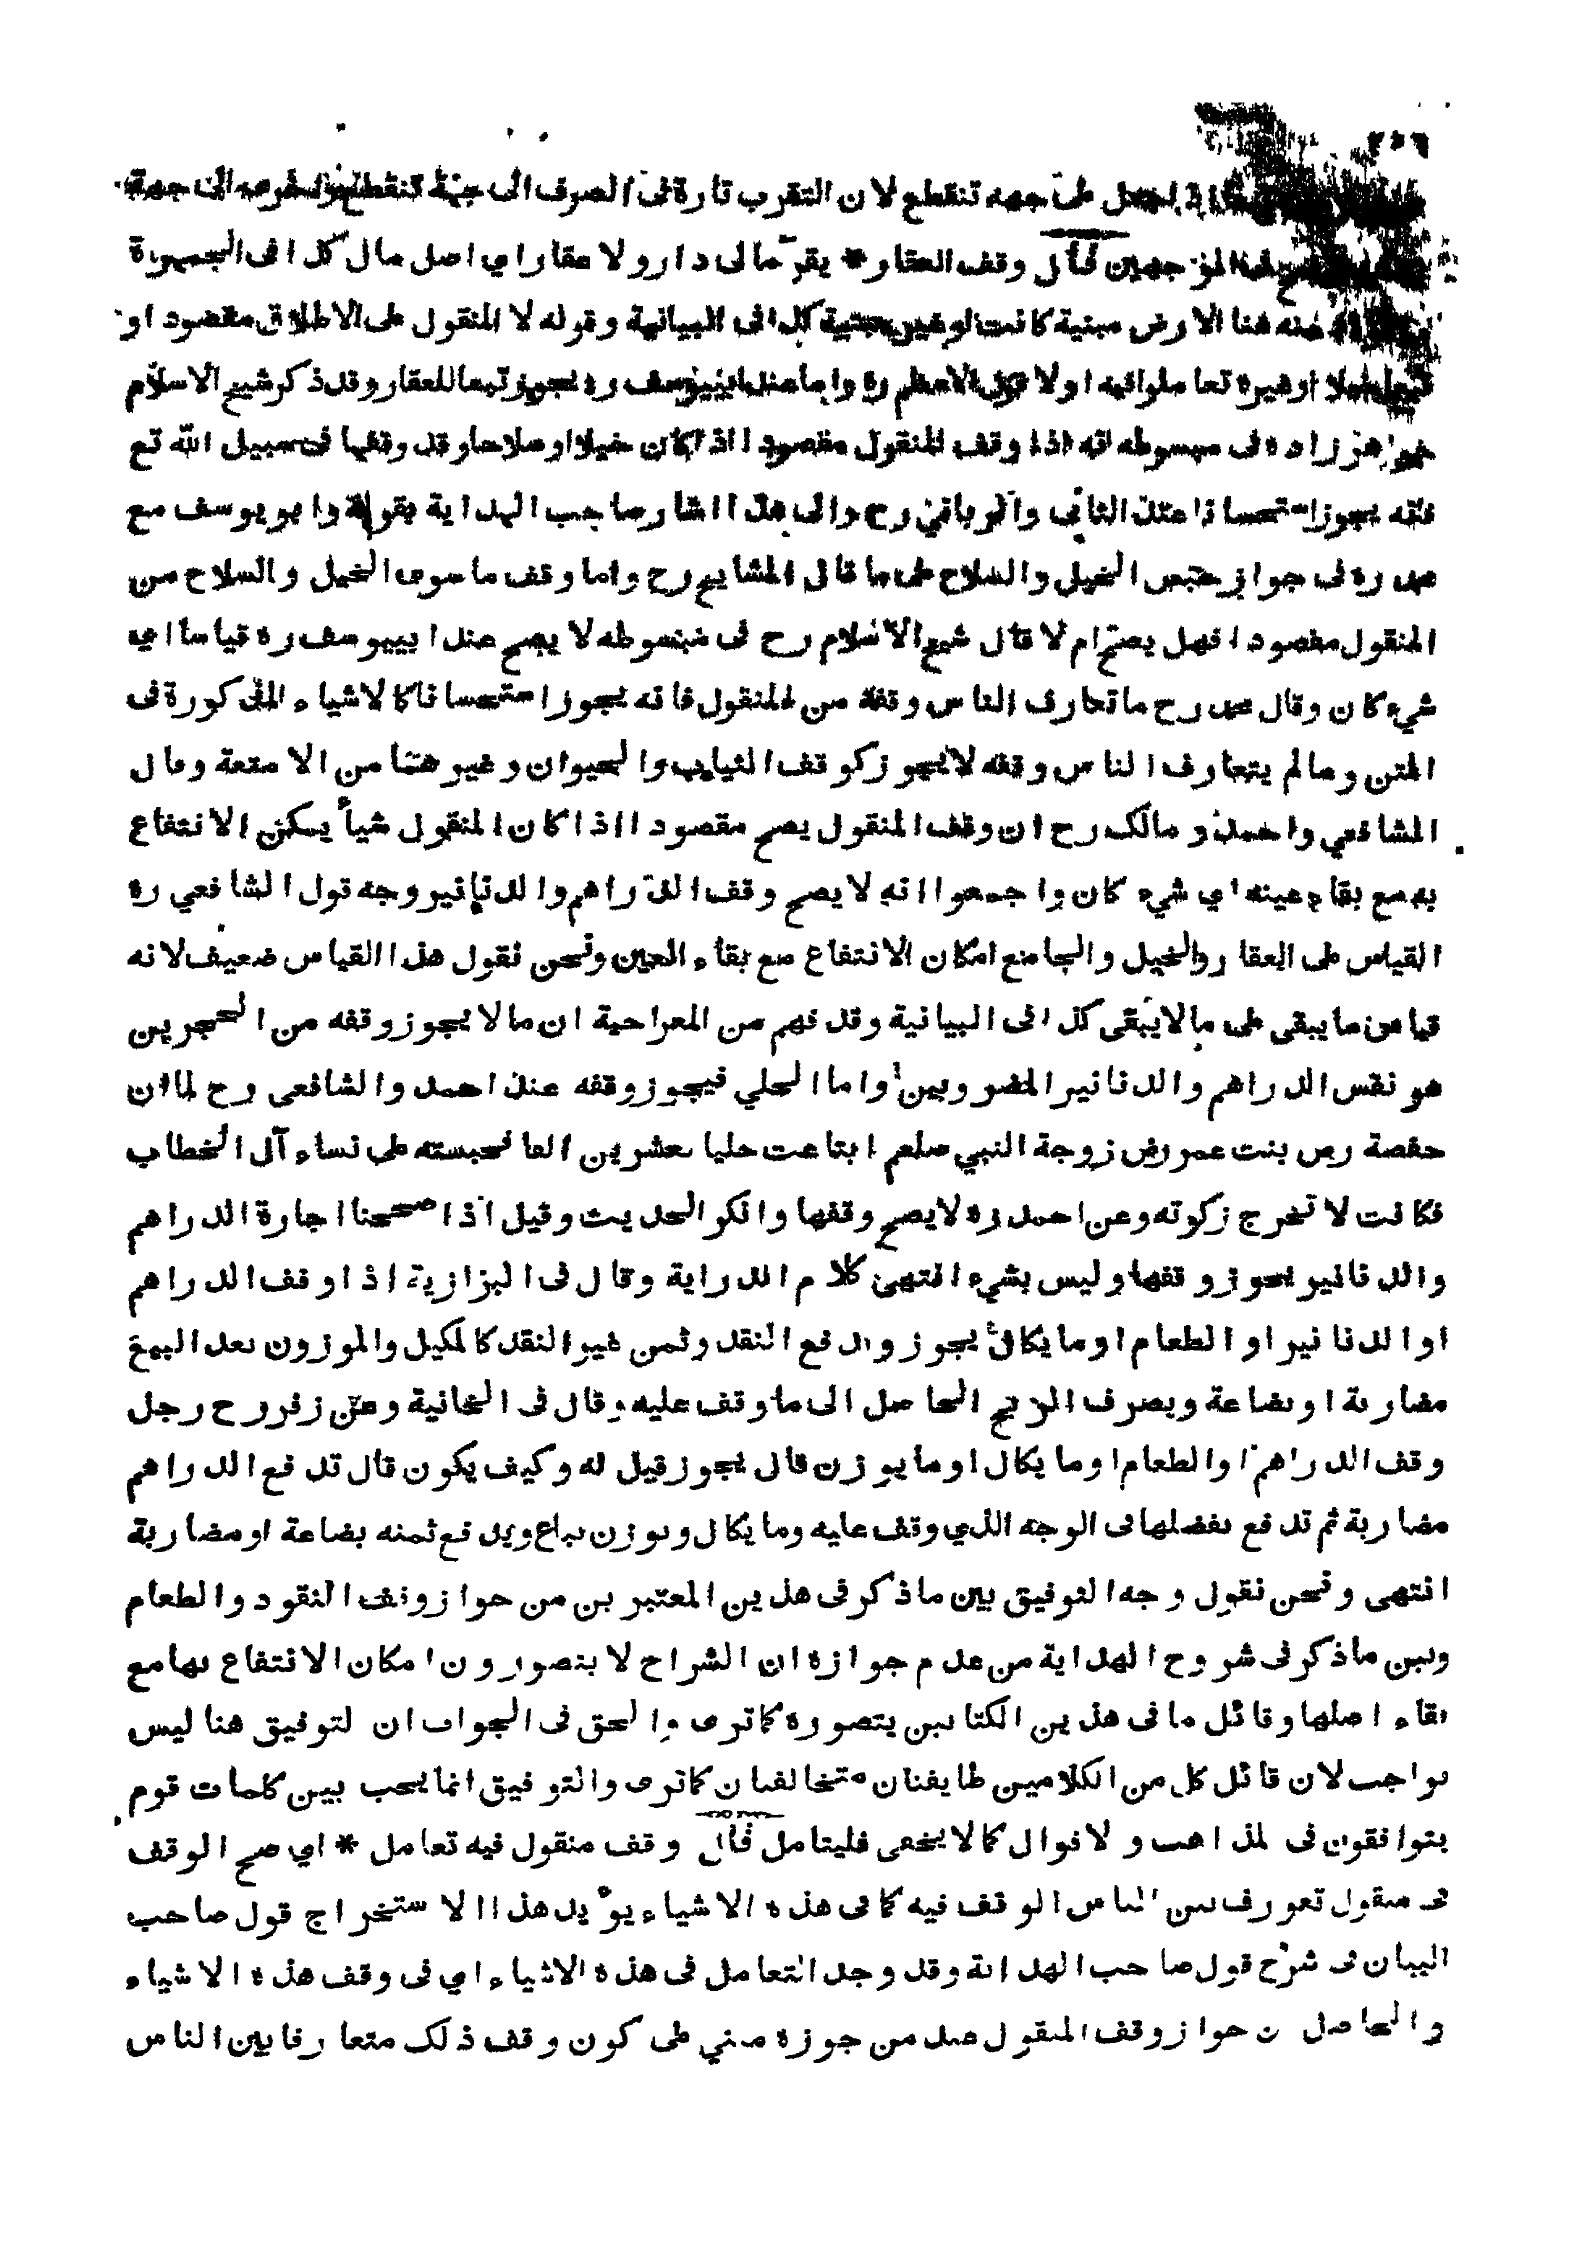 ٢٥٦
جعل على جهه تنقطع لان التقرب تارة فى الصرف الى جهة تنقطع الى جهة
قال وقف العقار * يقر مالى دار ولا عقار اي اصل مال كذا فى الجمهرة
هنا الارض مبنية كانت او غير مبنية كذا فى البيانية وقوله لا المنقول على الاطلاق مقصودا و
او غيره تعاملوا فيه او لا الاعظم ره واما عند ابييوسف ره يجوز تبعا للعقار وقد ذكر شيخ الاسلام
خواهرزاده فى مبسوطه انه اذا وقف المنقول مقصودا اذا كان خيلا او سلاحا وقد وقفها فى سبيل الله تع
فقه يجوز استحسانا عند الثانى والرباني رح والى هذا اشار صاحب الهداية بقوله وابو يوسف مع
محمد ره فى جواز حبس الخيل والسلاح على ما قال المشايخ رح واما وقف ما سوى الخيل والسلاح من
المنقول مقصودا فهل يصح ام لا قال شيخ الاسلام رح فى مبسوطه لا يصح عند ابييوسف ره قياسا اي
شيء كان وقال محمد رح ما تعارف الناس وقفه من المنقول فانه يجوز استحسانا كالاشياء المذكورة فى
المتن وما لم يتعارف الناس وقفه لا يجوز كوقف الثياب والحيوان وغيرهما من الامتعة وقال
الشافعي واحمد و مالك رح ان وقف المنقول يصح مقصودا اذا كان المنقول شيأ يمكن الانتفاع
به مع بقاء عينه اي شيء كان واجمعوا انه لا يصح وقف الدراهم والدنانير وجه قول الشافعي ره
القياس على العقار والخيل والجامع امكان الانتفاع مع بقاء العين ونحن نقول هذا القياس ضعيف لانه
قياس ما يبقى على ما لا يبقى كذا فى البيانية وقد فهم من المعراجية ان ما لا يجوز وقفه من الحجرين
هو نفس الدراهم والدنانير المضروبين واما الحلي فيجوز وقفه عند احمد والشافعى رح لما ان
حفصة رض بنت عمر رض زوجة النبي صلعم ابتاعت حليا بعشرين الفا فحبسته على نساء آل الخطاب
فكانت لا تخرج زكوته وعن احمد ره لا يصح وقفها وانكر الحديث وقيل اذا صححنا اجارة الدراهم
والدنانير يجوز وقفها وليس بشيء انتهى كلام الدراية وقال فى البزازية اذا وقف الدراهم
او الدنانير او الطعام او ما يكال يجوز و يدفع النقد وثمن غير النقد كالمكيل والموزون بعد البيع
مضاربة او بضاعة ويصرف الربح الحاصل الى ما وقف عليه وقال فى الخانية وعن زفر رح رجل
وقف الدراهم او الطعام او ما يكال او ما يوزن قال يجوز قيل له وكيف يكون قال تدفع الدراهم
مضاربة ثم تدفع بفضلها فى الوجه الذي وقف عليه وما يكال ويوزن يباع ويدفع ثمنه بضاعة او مضاربة
انتهى ونحن نقول وجه التوفيق بين ما ذكر فى هذين المعتبرين من جواز وقف النقود والطعام
وبين ما ذكر فى شروح الهداية من عدم جوازه ان الشراح لا يتصورون امكان الانتفاع بها مع
بقاء اصلها وقائل ما فى هذين الكتابين يتصوره كما ترى والحق فى الجواب ان لتوفيق هنا ليس
بواجب لان قائل كل من الكلامين طايفتان متخالفتان كما ترى والتوفيق انما يجب بين كلمات قوم
يتوافقون فى لمذاهب و لاقوال كما لا يخفى فليتامل قال وقف منقول فيه تعامل * اي صح الوقف
فى منقول تعورف بين الناس الوقف فيه كما فى هذه الاشياء يؤيد هذا الاستخراج قول صاحب
البيان فى شرح قول صاحب الهداية وقد وجد التعامل فى هذه الاشياء اي فى وقف هذه الاشياء
والحاصل ن جواز وقف المنقول عند من جوزه مبني على كون وقف ذلك متعارفا بين الناس